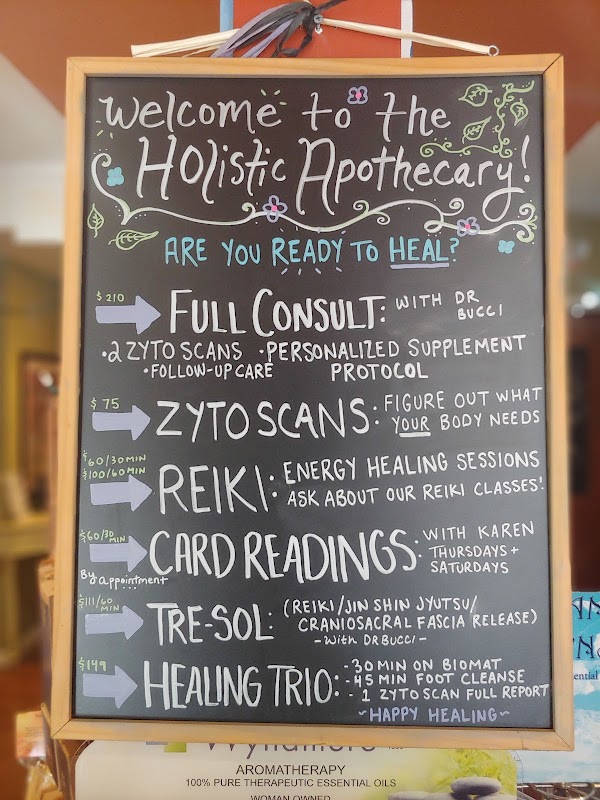 Welcome to the
Holistic Apothecary!
ARE YOU READY TO HEAL?
$210
FULL CONSULT: WITH DR
BUCCI
•2 ZYTO SCANS •PERSONALIZED SUPPLEMENT
•FOLLOW-UP CARE PROTOCOL
$75
ZYTO SCANS: FIGURE OUT WHAT
YOUR BODY NEEDS
$60/30MIN
$100/60MIN
REIKI: ENERGY HEALING SESSIONS
ASK ABOUT OUR REIKI CLASSES!
$60/30
MIN
CARD READINGS: WITH KAREN
THURSDAYS +
SATURDAYS
By appointment
$111/60
MIN
TRE-SOL: (REIKI/JIN SHIN JYUTSU/
CRANIOSACRAL FASCIA RELEASE)
- With DR BUCCI -
$149
HEALING TRIO: - 30 MIN ON BIOMAT
- 45 MIN FOOT CLEANSE
- 1 ZYTO SCAN FULL REPORT
~HAPPY HEALING~
AROMATHERAPY
100% PURE THERAPEUTIC ESSENTIAL OILS
WOMAN OWNED